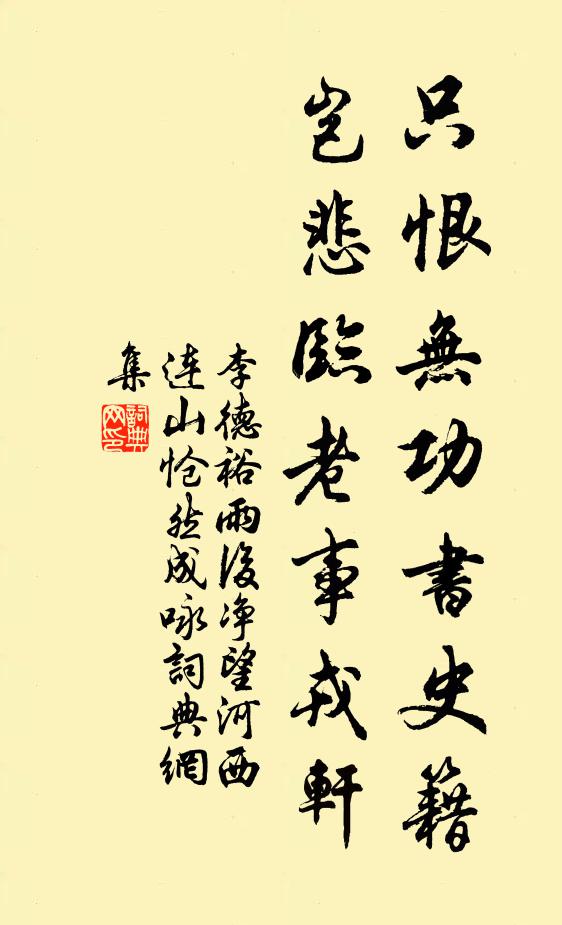 只恨無功書史籍
豈悲臨老事戎軒
李德裕雨後净望河西
连山怆然成咏詞典網
集
詞典
网印